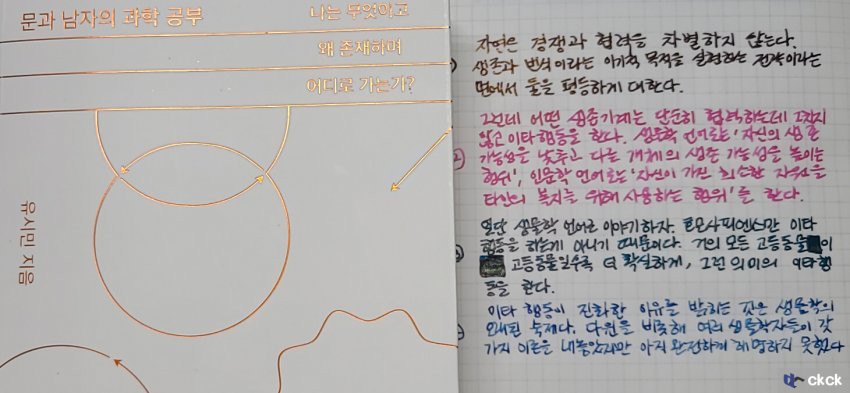 문과 남자의 과학 공부
나는 무엇이고
왜 존재하며
어디로 가는가?
유시민 지음
자연은 경쟁과 협력을 차별하지 않는다.
생존과 번식이라는 이기적 목적을 실현하는 전략이라는
면에서 둘을 평등하게 대한다.
그런데 어떤 생존기계는 단순히 협력하는데 그치지
않고 이타행동을 한다. 생물학 언어로는 '자신의 생존
가능성을 낮추고 다른 개체의 생존 가능성을 높이는
행위', 인문학 언어로는 '자신이 가진 희소한 자원을
타인의 복지를 위해 사용하는 행위'를 한다.
일단 생물학 언어로 이야기하자. 호모사피엔스만 이타
행동을 하는게 아니기 때문이다. 거의 모든 고등동물이
고등동물일수록 더 확실하게, 그런 의미의 이타행
동을 한다.
이타 행동이 진화한 이유를 밝히는 것은 생물학의
오래된 숙제다. 다윈을 비롯해 여러 생물학자들이 갖
가지 이론을 내놓았지만 아직 완전하게 해명하지 못했다
ckck